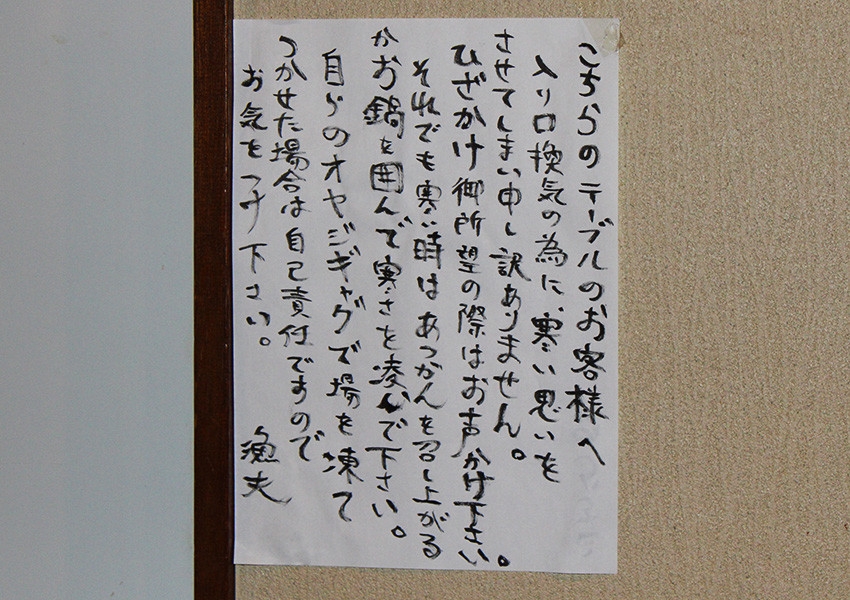 こちらのテーブルのお客様へ
入り口換気の為に、寒い思いを
させてしまい申し訳ありません。
ひざかけ御所望の際はお声かけ下さい。
それでも寒い時はあつかんを召し上がる
かお鍋を囲んで寒さを凌んで下さい。
自らのオヤジギャグで場を凍て
つかせた場合は自己責任ですので
お気をつけ下さい。
漁夫